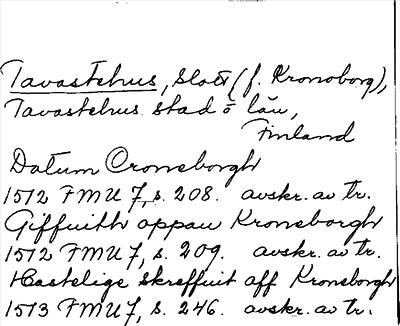 Tavastehus, slott (f. Kronoborg),
Tavastehus stad o län,
Finland
Datum Croneborgh
1512 FMU 7, s. 208. avskr. av tr.
Giffuith oppaa Kroneborgh
1512 FMU 7, s. 209. avskr. av tr.
Hastelige skreffuit aff Kroneborgh
1513 FMU 7, s. 246. avskr. av tr.